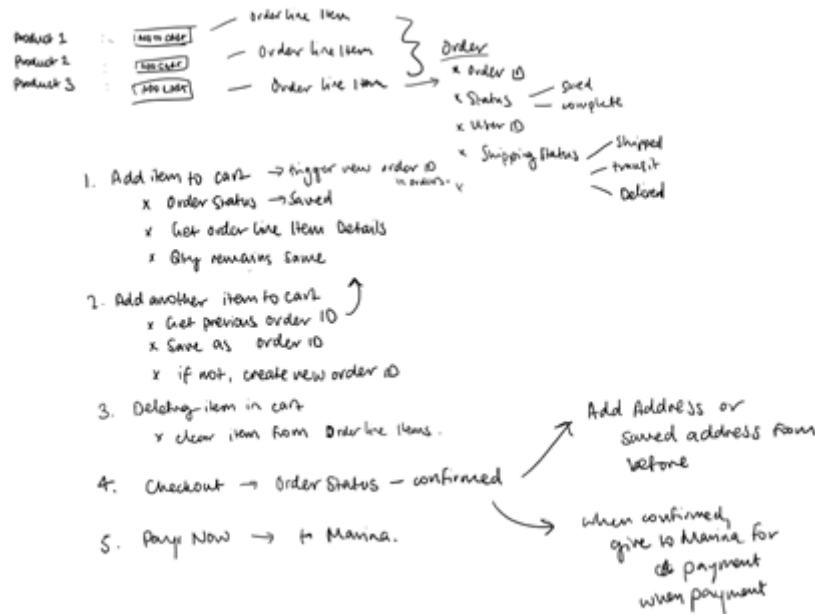 Product 1 : Add to cart — Order line Item
Product 2 : Add Cart — Order line Item
Product 3 : Add Cart — Order line Item
Order
x Order ID
x Status saved
complete
x User ID
x Shipping Status Shipped
transit
x
1. Add item to cart → trigger new order ID
in orders.
x Order Status → Saved
x Get order line Item Details
x Qty remains same
2. Add another item to cart
x Get previous order ID
x Save as order ID
x if not, create new order ID
3. Deleting item in cart
x clear item from Order line Items.
4. Checkout → Order Status – confirmed
Add Address or
saved address from
before
5. Pay Now → to Marina.
when confirmed,
give to Marina for
payment
when payment